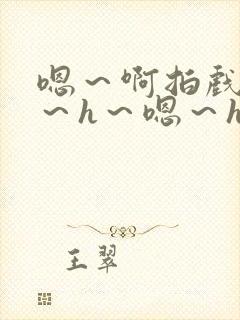 嗯～啊拍戏
～h～嗯～h
王翠